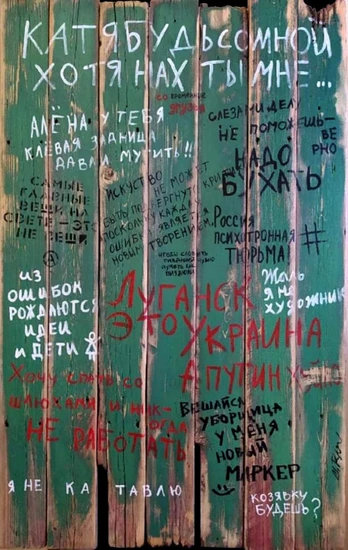 КАТЯ БУДЬ СО МНОЙ
ХОТЯ НАХ ТЫ МНЕ...
АЛЁНА У ТЕБЯ
КЛЁВАЯ ЗАДНИЦА
ДАВАЙ МУТИТЬ!!
СЛЕЗАМИ ДЕЛУ
НЕ ПОМОЖЕШЬ-
ВЕ
РНО
НАДО
БУХАТЬ
САМЫЕ
ГЛАВНЫЕ
ВЕЩИ НА
СВЕТЕ - ЭТО
НЕ ВЕЩИ
ИСКУСТВО
НЕ МОЖЕТ
БЫТЬ ПОДВЕРГНУТО КРИТИКЕ
ПОСКОЛЬКУ КАЖДАЯ
ОШИБКА ЯВЛЯЕТСЯ
НОВЫМ ТВОРЕНИЕМ
Россия
ПСИХОТРОННАЯ
ТЮРЬМА!
#
ИЗ
ОШИБОК
РОЖДАЮТСЯ
ИДЕИ
И ДЕТИ
ЛУГАНСК
ЭТО УКРАИНА
А ПУТИН Х-
Жаль
я не
художник
Хочу спать со
шлюхами и ник-
огда
НЕ РАБОТАТЬ
ВЕШАЙСЯ
УБОРЩИЦА
У МЕНЯ
НОВЫЙ
МАРКЕР
Я НЕ КА ТАВЛЮ
КОЗЯВКУ
БУДЕШЬ?